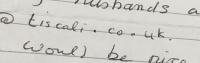 husbands a
@ tiscali.co.uk.
would be nice